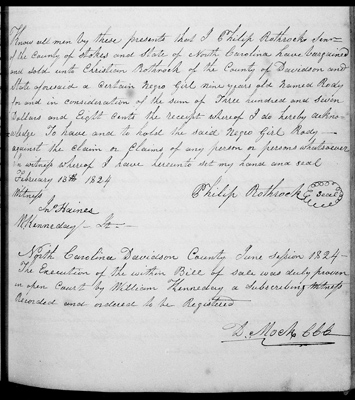 Know all men by these presents that I Philip Rothrock Senr
of the County of Stokes and State of North Carolina have bargained
and sold unto Christian Rothrock of the County of Davidson and
State aforesaid a Certain Negro Girl nine years old named Rody
for and in consideration of the sum of Three hundred and Seven
Dollars and Eight Cents the receipt whereof I do hereby acknow
ledge To have and to hold the said Negro Girl Rody
against the Claim or Claims of any person or persons whatsoever
in witness whereof I have hereunto set my hand and seal
February 13th 1824
Philip Rothrock Seal
Witness
Jno Haines
W Kenneday Jt
North Carolina Davidson County June Session 1824
The Execution of the within Bill of sale was duly proven
in open Court by William Kenneday a subscribing witness
Recorded and ordered to be Registered
D. Mock CCC